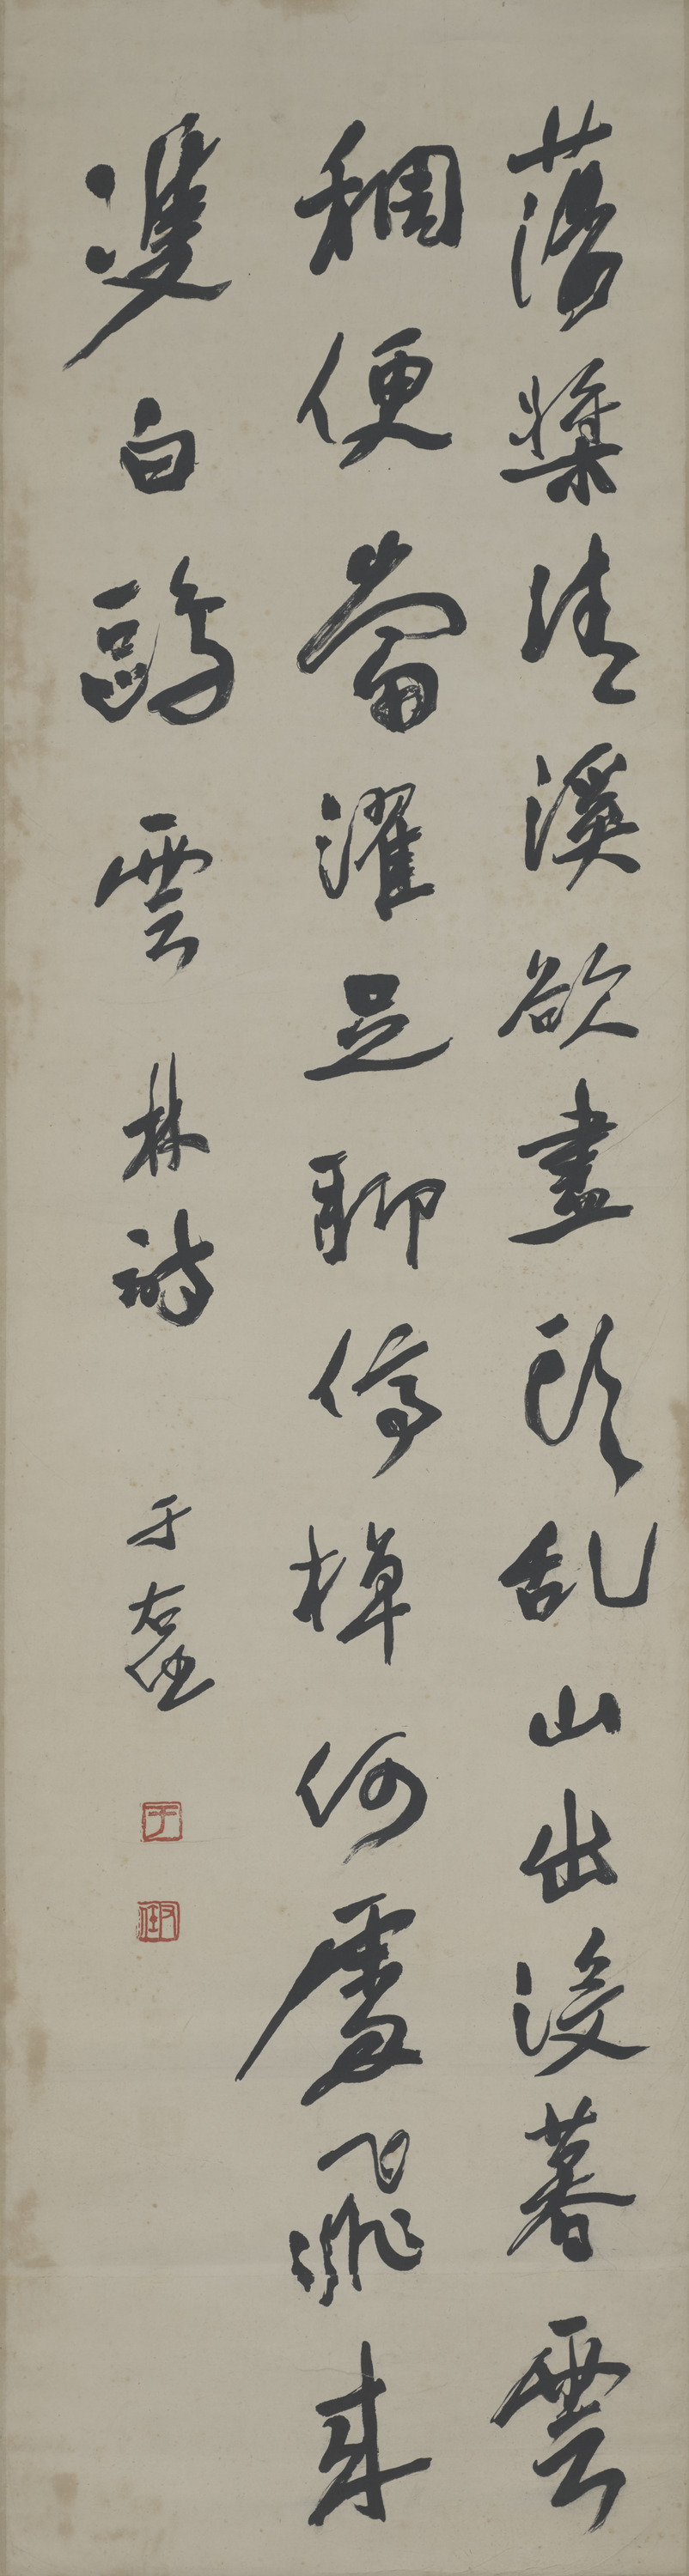 蕩槳清溪欲盡頭乱山出沒暮雲
稠便當濯足聊停棹何處飛來
雙白鷗 雲林詩 于右任
于
右任